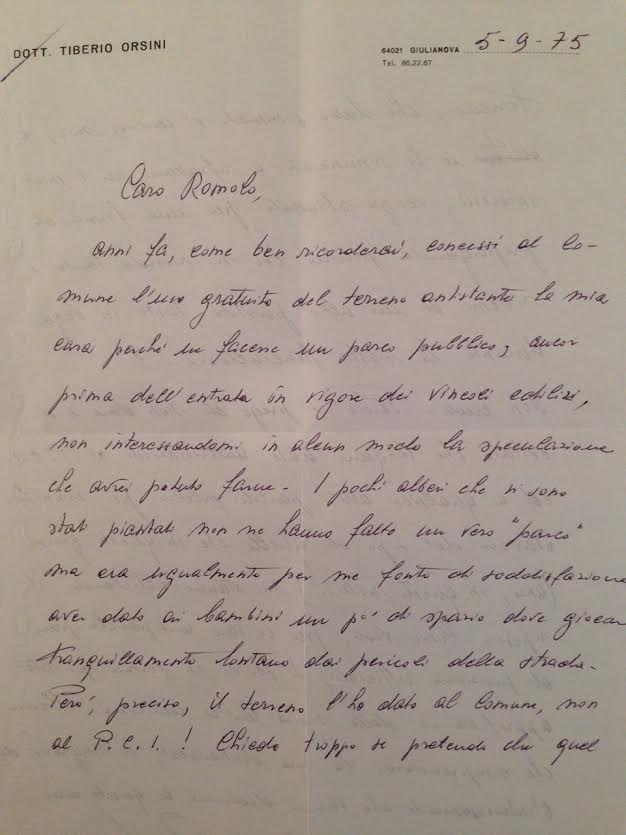 DOTT. TIBERIO ORSINI
64021 GIULIANOVA 5-9-75
Tel. 86.22.67
Caro Romolo,
anni fa, come ben ricorderai, concessi al Co-
mune l'uso gratuito del terreno antistante la mia
casa perché ne facesse un parco pubblico, ancor
prima dell'entrata in vigore dei vincoli edilizi,
non interessandomi in alcun modo la speculazione
che avrei potuto farne - I pochi alberi che vi sono
stati piantati non ne hanno fatto un vero "parco"
ma era ugualmente per me fonte di soddisfazione
aver dato ai bambini un po' di spazio dove giocar
tranquillamente lontano dai pericoli della strada -
Però, preciso, il terreno l'ho dato al Comune, non
al P.C.I.! Chiedo troppo se pretendo che quel